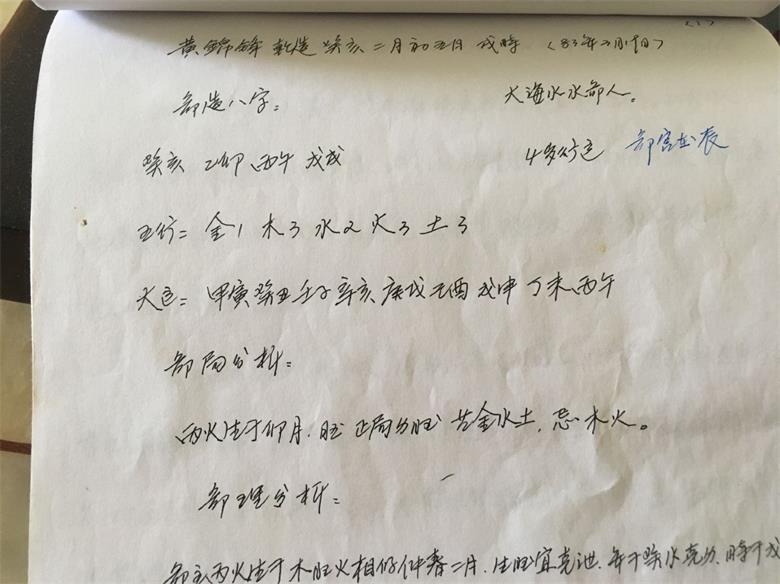 (1)
黄锦锋 乾造 癸亥 二月初五日 戌時 (83年3月19日)
命造八字: 大海水水命人。
癸亥 乙卯 丙午 戊戌 4岁行运 命宫在辰
五行= 金1 木3 水2 火3 土3
大运= 甲寅 癸丑 壬子 辛亥 庚戌 己酉 戊申 丁未 丙午
命局分析:
丙火生于卯月.旺 正局身旺 喜金水土,忌木火。
命理分析:
命主丙火生于木旺火相的仲春二月.生旺宜克泄.年干癸水克火.時干戊